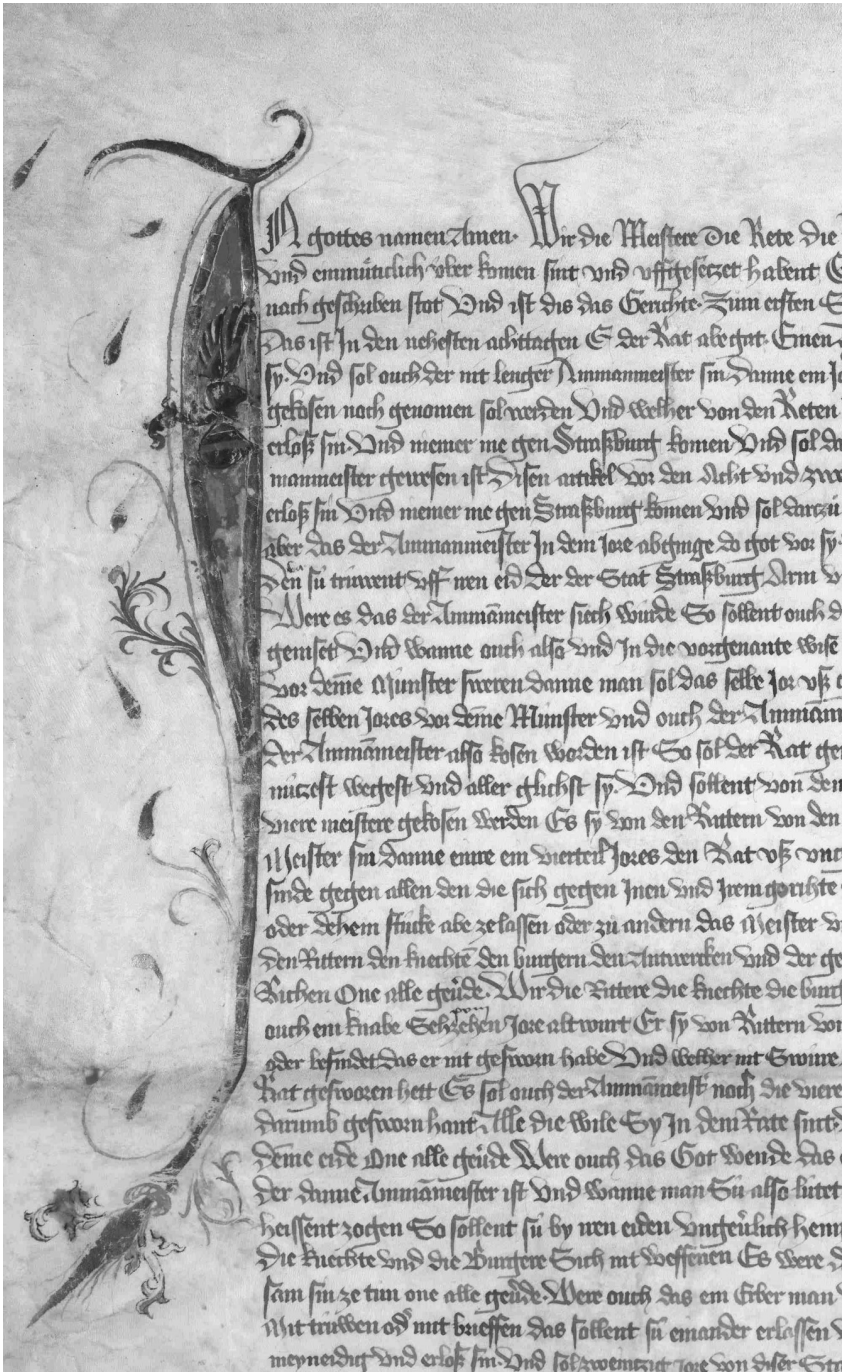 IN gottes namen Amen. Wir die Meistere Die Rete die
vnd einmüticlich vber komen sint vnd vffgesetzet habent
nach geschriben stot Vnd ist dis das Gerichte. Zum ersten
Das ist In den nehesten achttagen E der Rat abe gat. Einen
sy. Vnd sol ouch der nit lenger Ammanmeister sin danne ein
gekosen noch genomen sol werden Vnd welher von den Reten
erloß sin. Vnd niemer me gen Straßburg komen Vnd sol
manmeister gewesen ist Disen artikel vor den Acht vnd
erloß sin Vnd niemer me gen Straßburg komen vnd sol darzü
aber das der Ammanmeister In dem Jore abginge do got vor sy.
Den sü truwent vff iren eid Der der Stat Straßburg Arm
Were es das der Ammāmeister siech wurde So sollent ouch
geniset Vnd wanne ouch also vnd In die vorgenante wise
vor deme Munster sweren danne man sol das selbe Jor vß
des selben Jores vor deme Munster vnd ouch der
der Ammāmeister also kosen worden ist So sol der Rat
nützest wegest vnd aller glichst sy. Vnd sollent von den
viere meistere gekosen werden Es sy von den Rittern von den
Meister sin danne einre ein vierteil Jores den Rat vß
sinde gegen allen den die sich gegen Inen vnd Irem gerihte
oder dehein stücke abe ze lassen oder zu andern das Meister
den Rittern den knechtē den burgern den Antwercken vnd der
Richen One alle geūde. Wir die Rittere die knechte die
ouch ein knabe Sehzehen Jore alt wurt Er sy von Rittern
oder befindet das er nit gesworn habe Vnd welher nit Swüre
Rat gesworen hett Es sol ouch der Ammāmeist noch die viere
darumb gesworn hant Alle die wile Sy In dem Rate sint
deme eide One alle geūde Were ouch das Got wende das
der danne Ammāmeister ist Vnd wanne man Sü also lütet
heissent zogen So sollent sü by iren eiden vngeūlich
die knechte vnd die Burgere Sich nit weffenen Es were
sam sin ze tun one alle geūde. Were ouch das ein Erber man
Mit trüwen od mit brieffen das sollent sü einander erlassen
meyneidig vnd erloß sin. Vnd sol zwentzig jore von diser